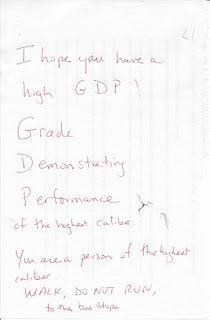 I hope you have a
high GDP!
Grade
Demonstrating
Performance
of the highest caliber.
You are a person of the highest
caliber.
WALK, DO NOT RUN,
to the bus stops